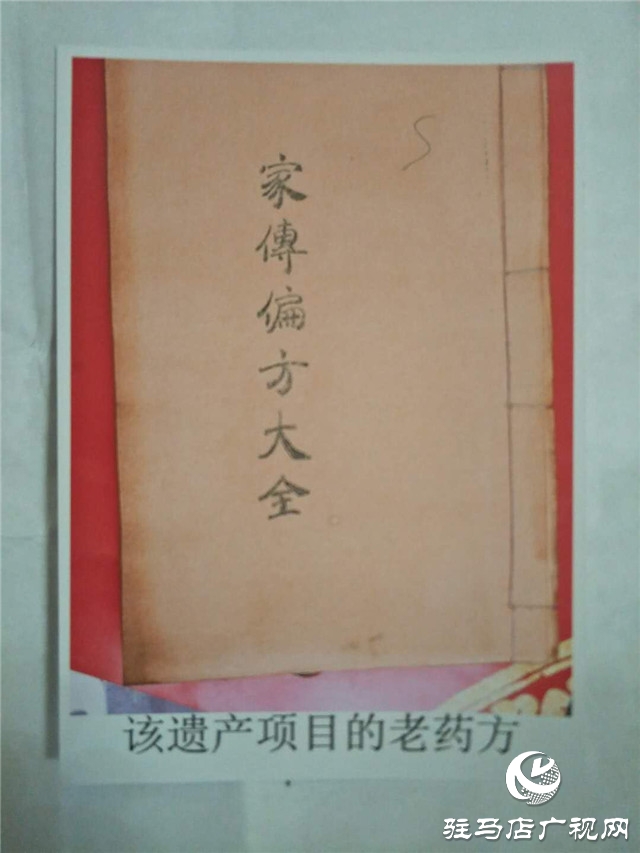 家傳偏方大全
该遗产项目的老药方
驻马店广视网